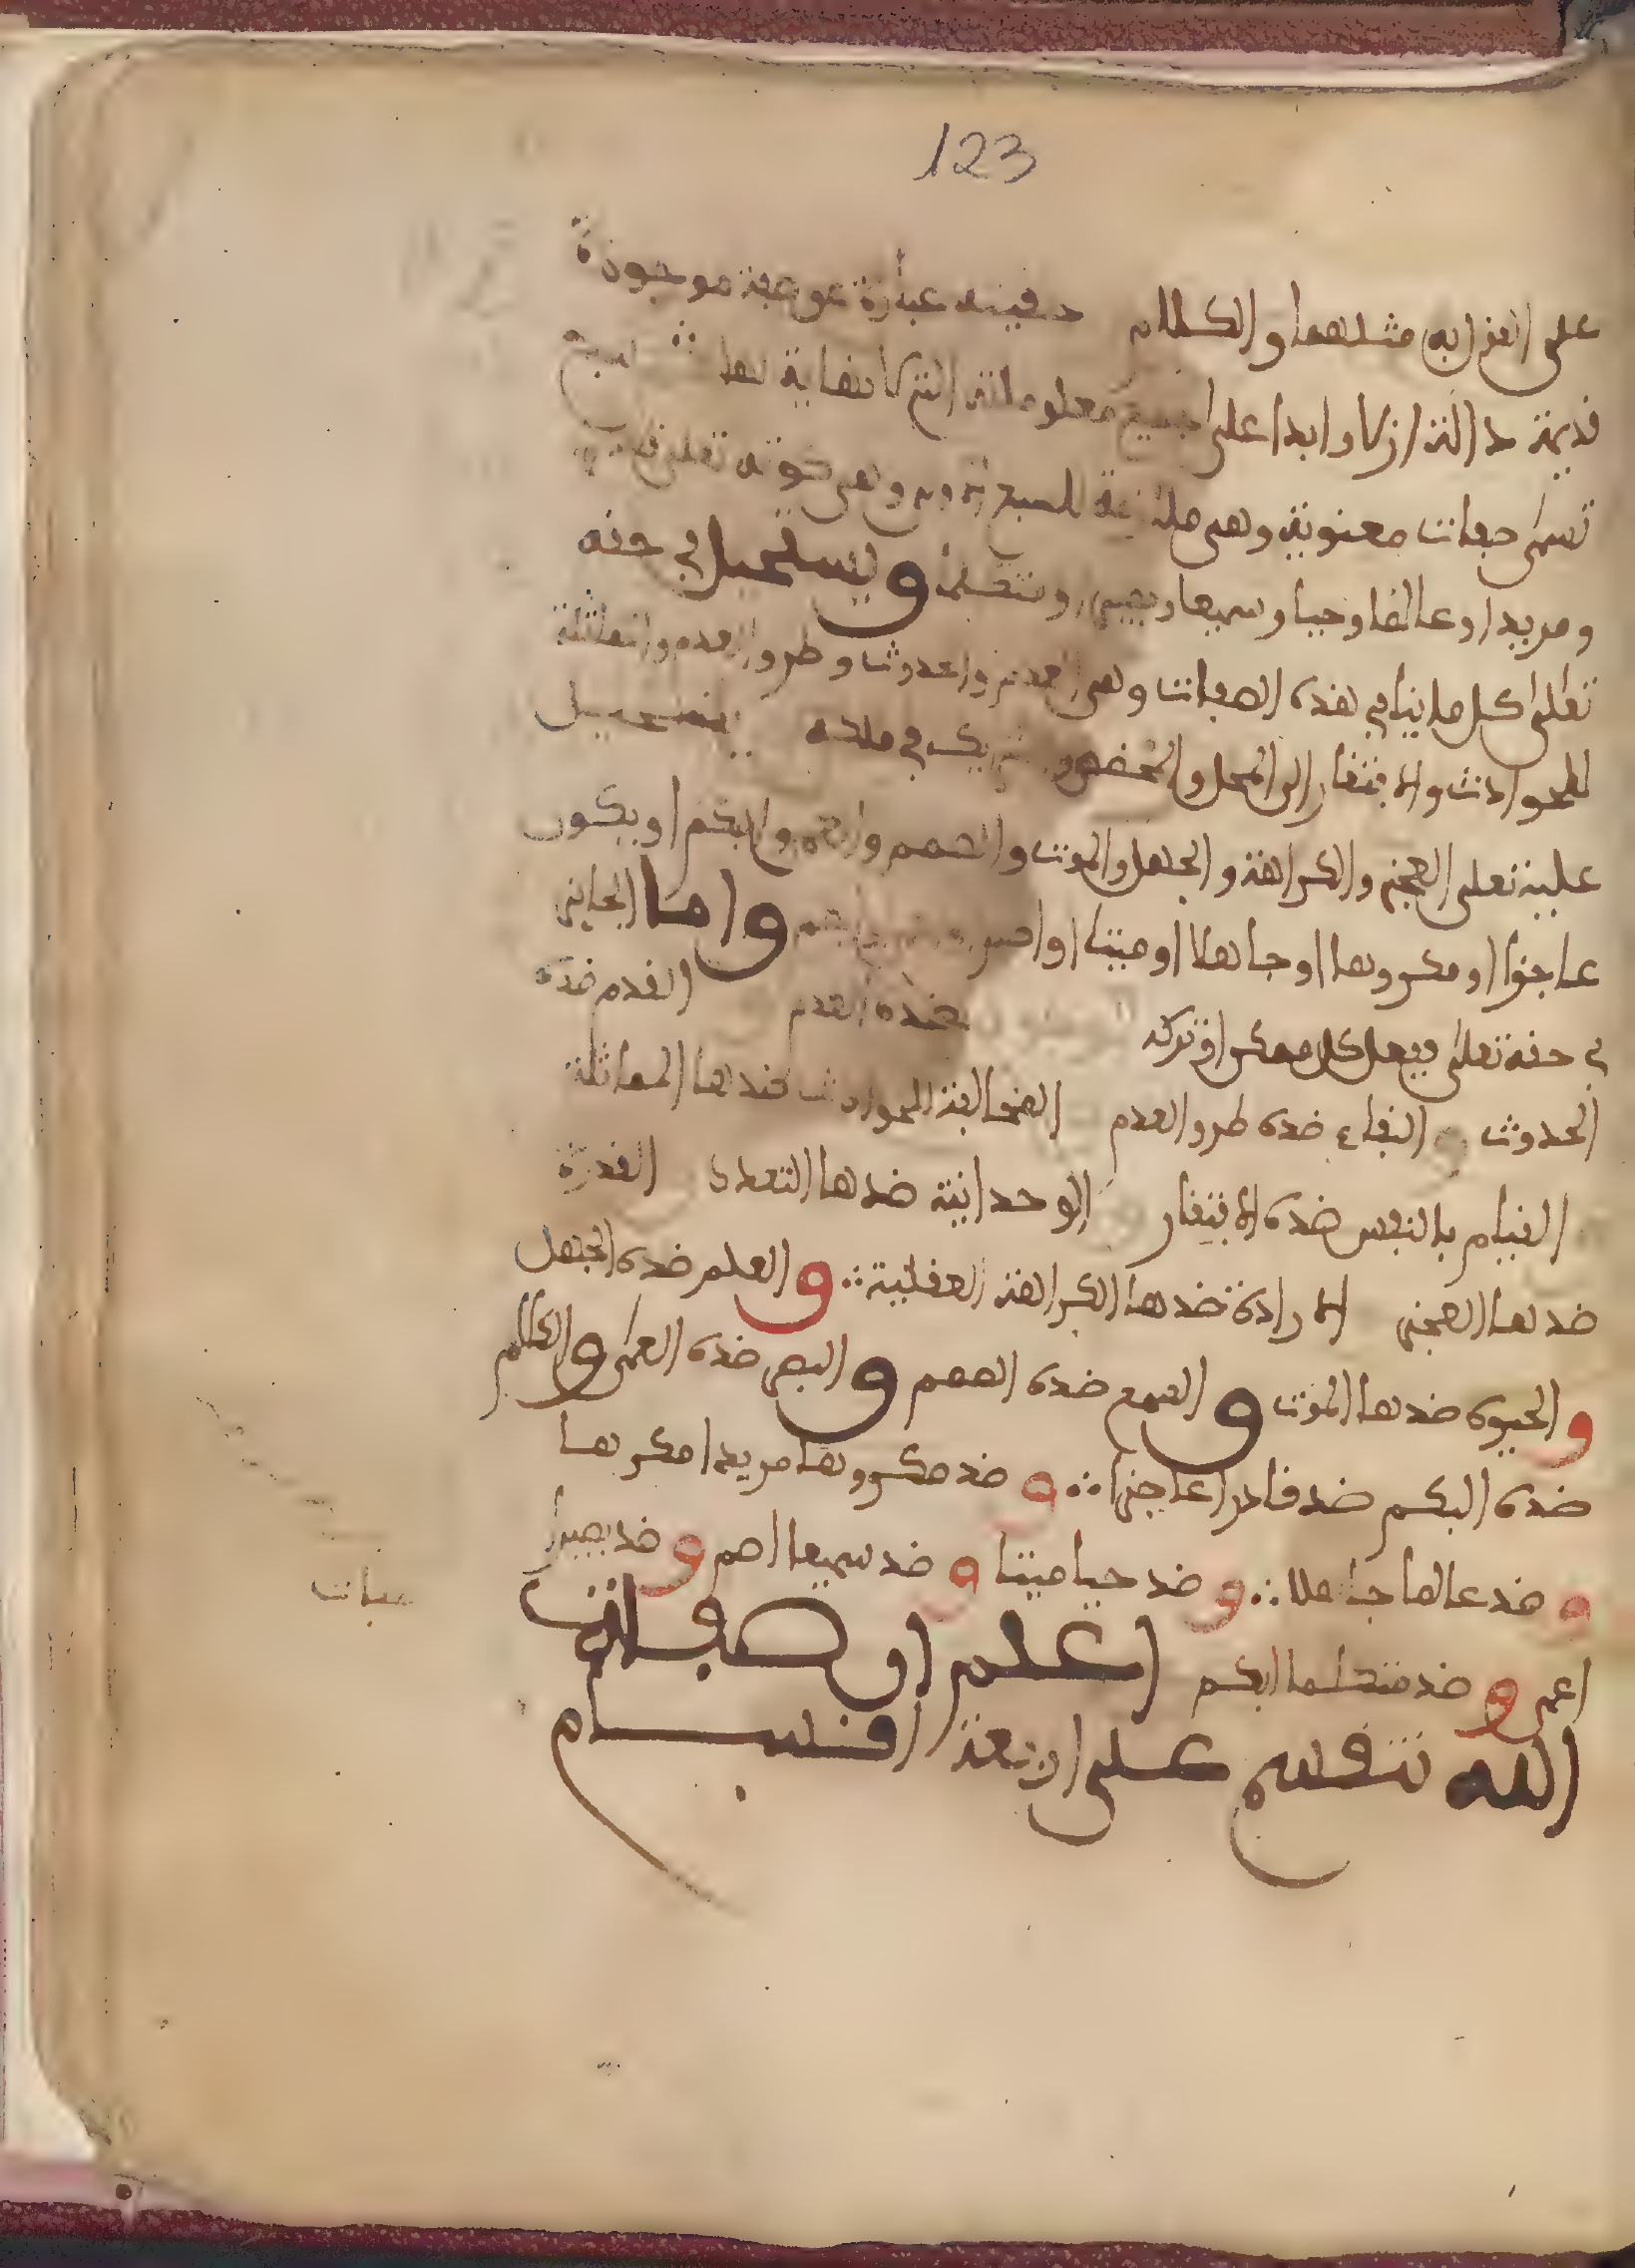 123
على مثلهما والكلام حقيقته عبارة عن صفة موجودة
قديمة دالة ازلا وابدا على جميع معلوماته التي لا نهاية لها سبع
تسمى صفات معنوية وهي ملازمة للسبع وهي كونه تعلى
ومريدا وعالما وحيا وسميعا وبصيرا ومتكلما ويستحيل في حقه
تعلى كل ما ينافي هذه الصفات وهي العدم والحدوث وطرو العدم والمماثلة
للحوادث والافتقار الى المحل والمخصص شريك في ملكه يستحيل
عليه تعلى العجز والكراهة والجهل والموت والصمم والعمى والبكم او يكون
عاجزا او مكروها او جاهلا او ميتا او اصم واما الجايز
في حقه تعلى ففعل كل ممكن او تركه ضده العدم القدم ضده
الحدوث البقاء ضده طرو العدم المخالفة للحوادث ضدها المماثلة
القيام بالنفس ضده الافتقار الوحدانية ضدها التعدد القدرة
ضدها العجز الارادة ضدها الكراهة العقلية والعلم ضده الجهل
والحيوة ضدها الموت والسمع ضده الصمم والبصر ضده العمى والكلام
ضده البكم ضد قادرا عاجزا وضد مكروها مريدا مكرها
وضد عالما جاهلا وضد حيا ميتا وضد سميعا اصم وضد بصيرا
اعمى وضد متكلما ابكم اعلم ان صفات
الله تنقسم على اربعة اقسام
صفات